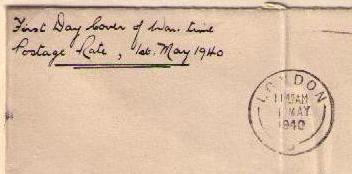 First Day Cover of War. time
Postage Rate, 1st. May 1940
LONDON
11 15AM
1 MAY
1940